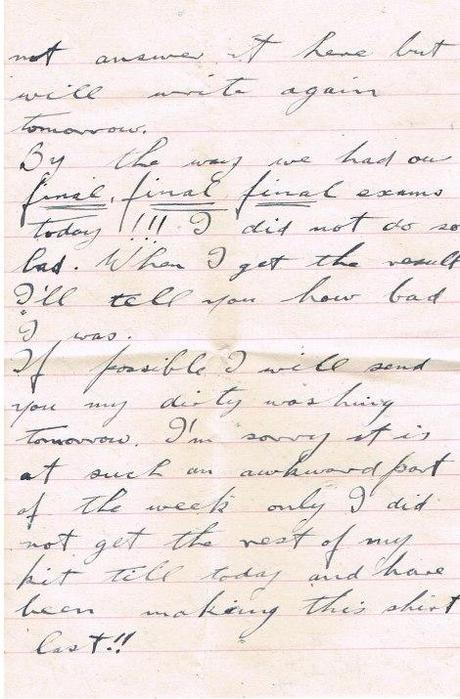 not answer it here but
will write again
tomorrow.
By the way we had our
final, final, final exams
today !!! I did not do so
bad. When I get the result
I'll tell you how bad
I was.
If possible I will send
you my dirty washing
tomorrow. I'm sorry it is
at such an awkward part
of the week only I did
not get the rest of my
kit till today and have
been making this shirt
last!!